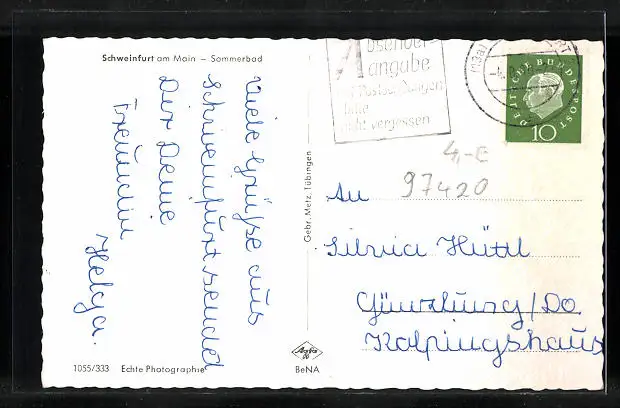 Schweinfurt am Main – Sommerbad
Viele Grüße aus
Schweinfurt sendet
Dir Deine
Freundin
Helga.
1055/333 Echte Photographie
Gebr. Metz, Tübingen
BeNA
Absender-
angabe
bitte
nicht vergessen
DEUTSCHE BUNDESPOST
10
4,-E
97420
An
Silvia Hüttl
Günzburg/Do.
Kolpingshaus